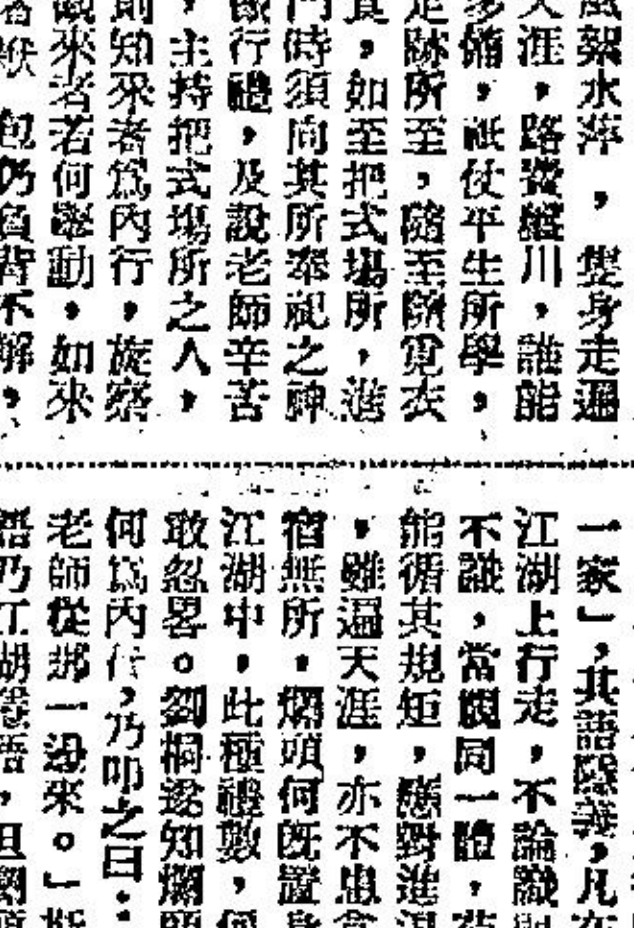 風絮水萍,隻身走遍
天涯,路資川,誰能
多備,祇仗平生所學,
足跡所至,隨至隨覓衣
食,如至把式場所,進
門時須向其所奉祀之神
像行禮,及說老師辛苦
,主持把式塲所之人,
則知來者爲內行,旋察
觀來者若何舉動,如來
者包仍負背不解,
一家」,其語隱義,凡在
江湖上行走,不論識與
不識,當視同一體,若
能循其規矩,應對進退
,雖遍天涯,亦不患食
宿無所,爛頭何旣置身
江湖中,此種禮數,何
敢忽畧。劉桐遂知爛頭
何爲內行,乃叩之曰:
老師從那一邊來。」斯
語乃江湖語,但爛頭